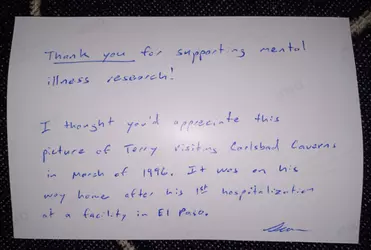 Thank you for supporting mental
illness research!
I thought you'd appreciate this
picture of Terry visiting Carlsbad Caverns
in March of 1996. It was on his
way home after his 1st hospitalization
at a facility in El Paso.